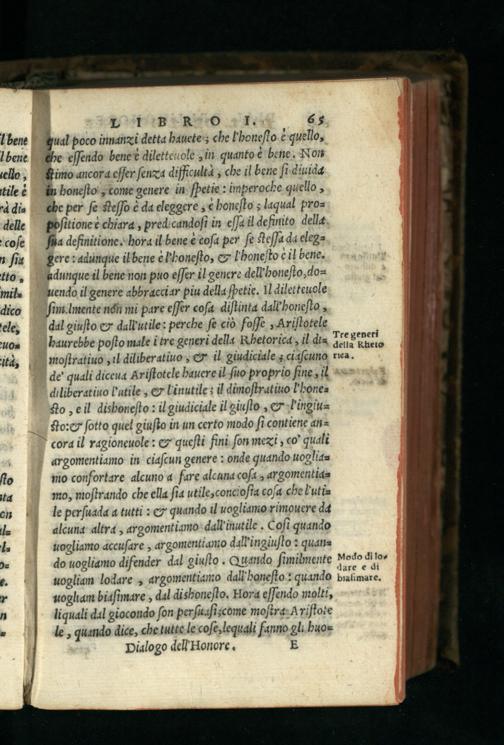 LIBRO I. 65
qual poco innanzi detta havete; che l'honesto è quello,
che essendo bene è diletteuole, in quanto è bene. Non
stimo ancora esser senza difficultà, che il bene si diuida
in honesto, come genere in spetie: imperoche quello,
che per se stesso è da eleggere, è honesto; laqual pro=
positione è chiara, predicandosi in essa il definito della
sua definitione. hora il bene è cosa per se stessa da eleg=
gere: adunque il bene è l'honesto, & l'honesto è il bene.
adunque il bene non puo esser il genere dell'honesto, do=
uendo il genere abbracciar piu della spetie. Il diletteuole
similmente non mi pare esser cosa distinta dall'honesto,
dal giusto & dall'utile: perche se ciò fosse, Aristotele
haurebbe posto male i tre generi della Rhetorica, il di=
mostratiuo, il diliberatiuo, & il giudiciale; ciascuno
de' quali diceua Aristotele hauere il suo proprio fine, il
diliberatiuo l'utile, & l'inutile; il dimostratiuo l'hone=
sto, e il dishonesto: il giudiciale il giusto, & l'ingiu=
sto: & sotto quel giusto in un certo modo si contiene an=
cora il ragioneuole: & questi fini son mezi, co' quali
argomentiamo in ciascun genere: onde quando uoglia=
mo confortare alcuno a fare alcuna cosa, argomentia=
mo, mostrando che ella sia utile, conciosia cosa che l'uti=
le persuada a tutti: & quando il uogliamo rimouere da
alcuna altra, argomentiamo dall'inutile. Così quando
uogliamo accusare, argomentiamo dall'ingiusto: quan=
do uogliamo difender dal giusto. Quando similmente
uogliam lodare, argomentiamo dall'honesto: quando
uogliam biasimare, dal dishonesto. Hora essendo molti,
liquali dal giocondo son persuasi; come mostra Aristote
le, quando dice, che tutte le cose, lequali fanno gli huo=
Dialogo dell'Honore. E
Tre generi
della Rheto
rica.
Modo di lo=
dare e di
biasimare.